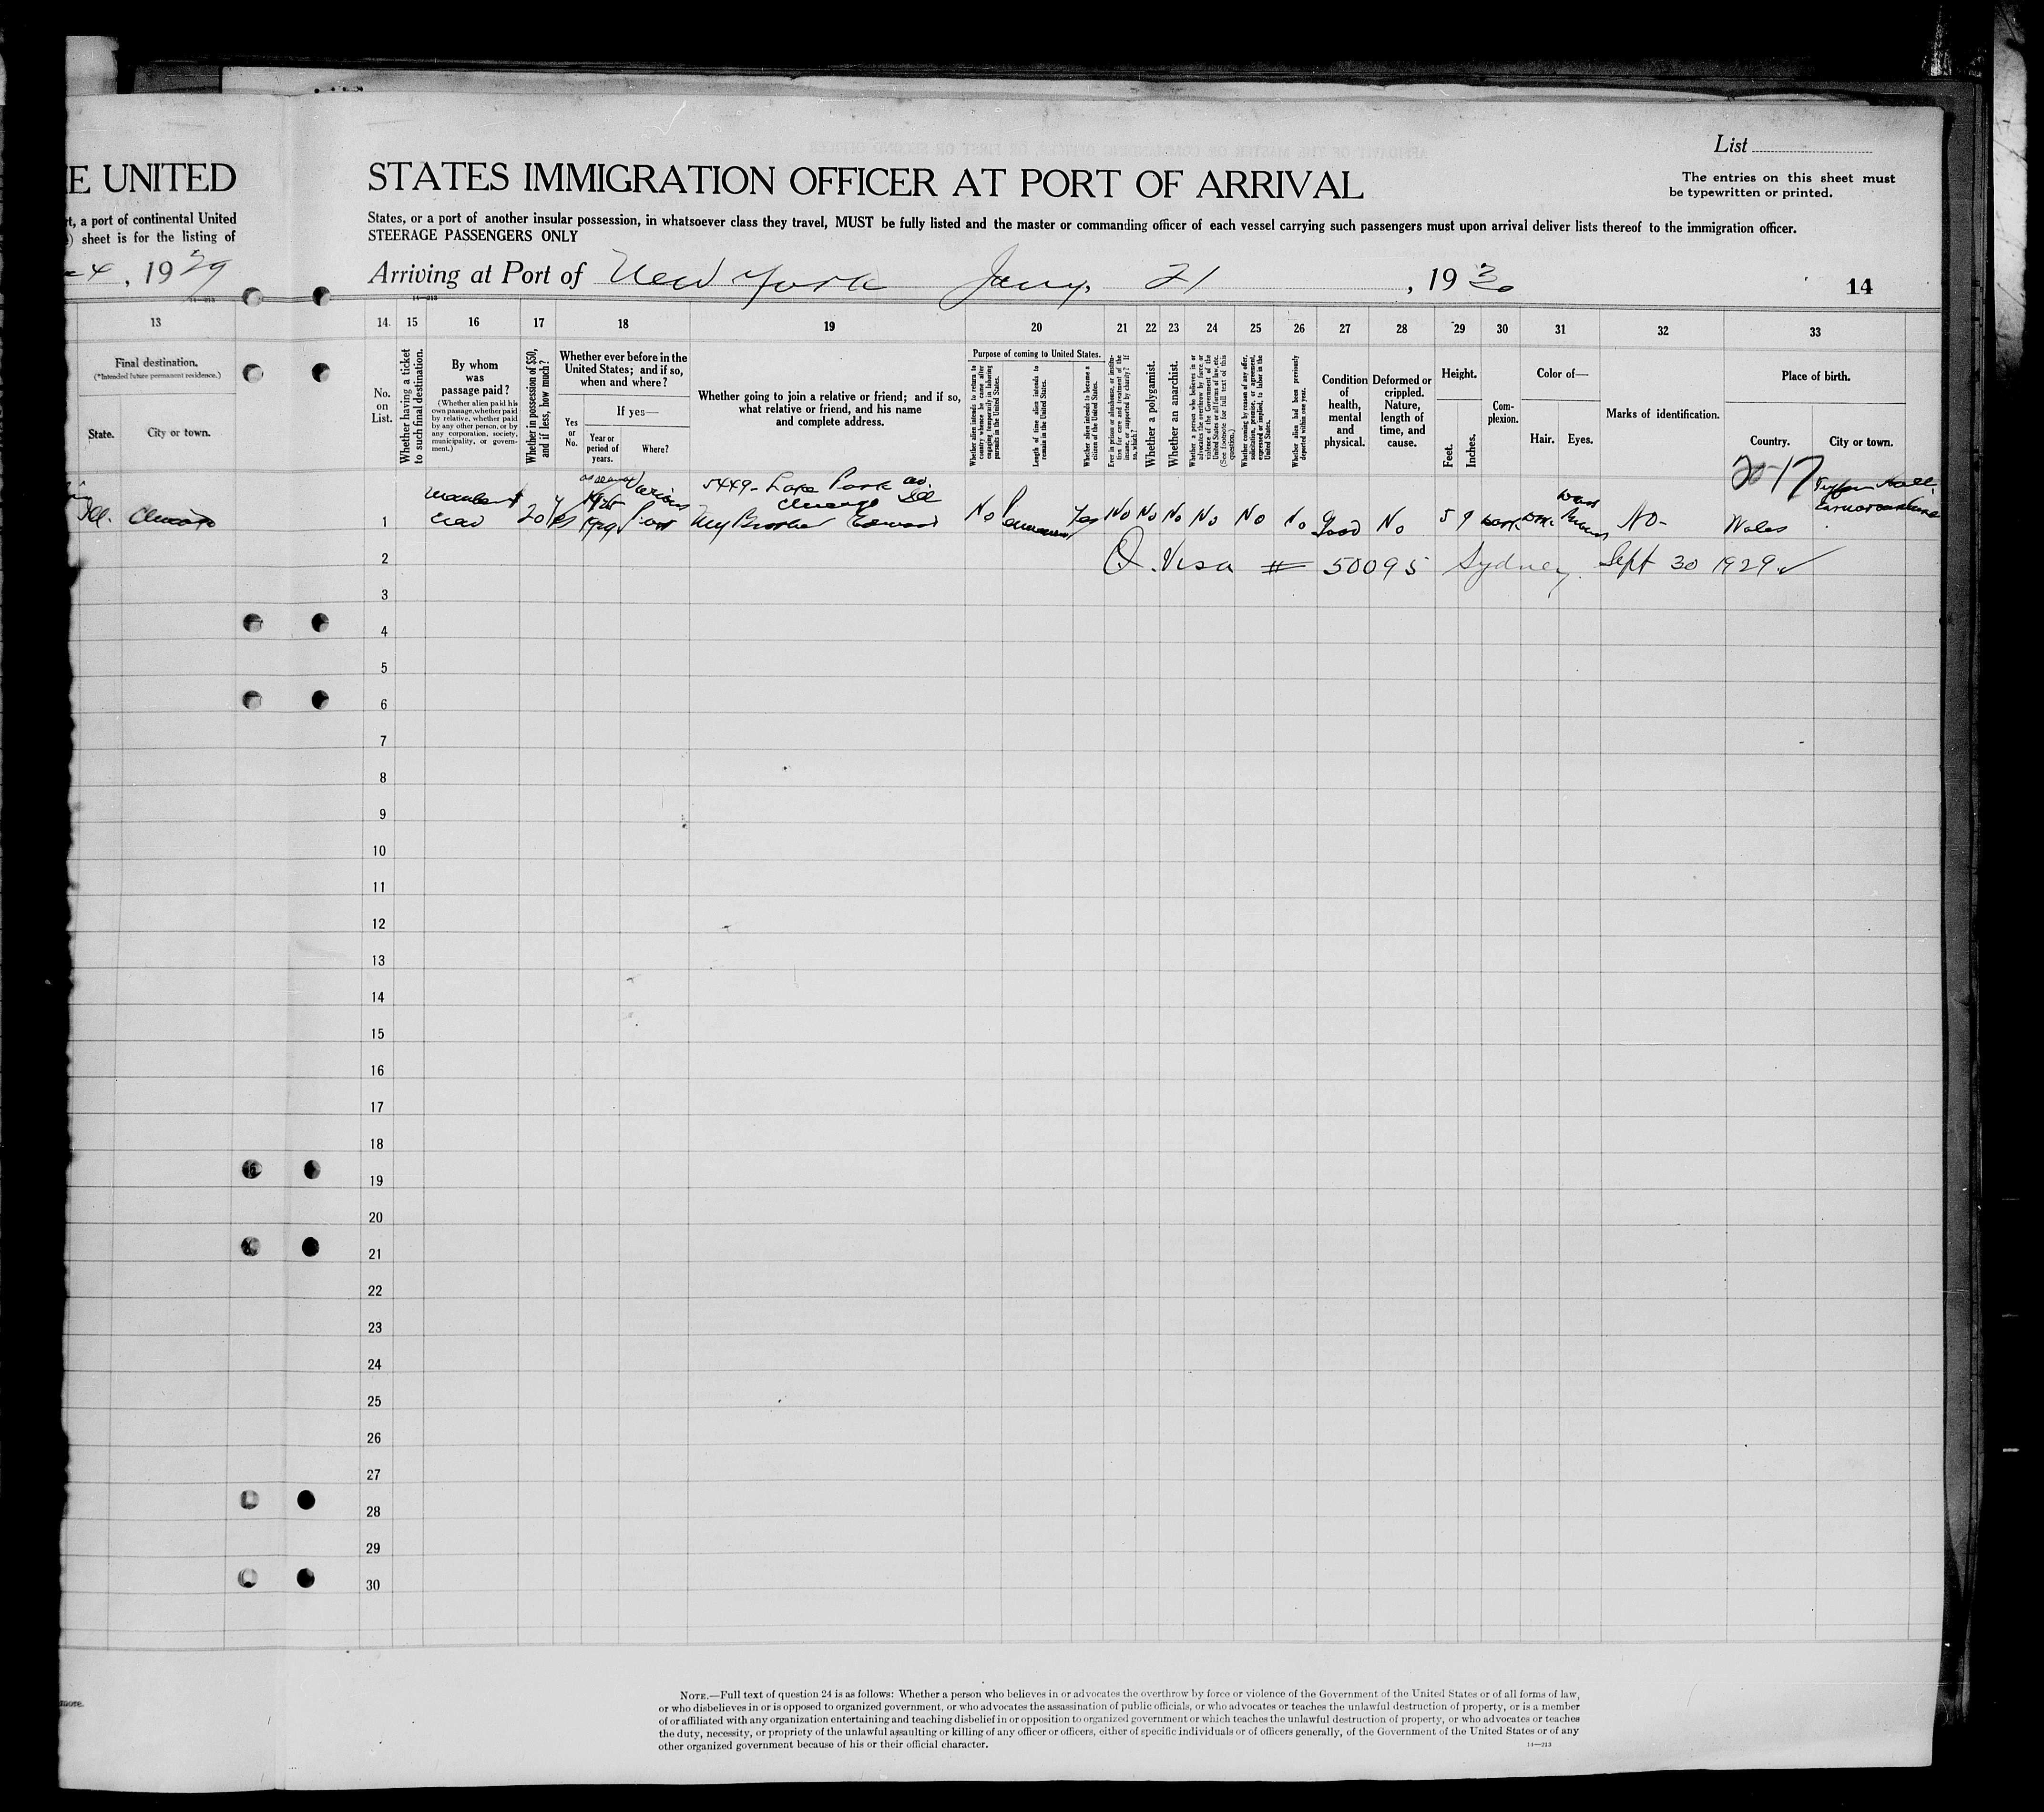 E UNITED
rt, a port of continental United
) sheet is for the listing of
4, 1929
14—213
13
Final destination.
(*Intended future permanent residence.)
State.
City or town.
Ill. Chicago
more.
List
The entries on this sheet must
be typewritten or printed.
STATES IMMIGRATION OFFICER AT PORT OF ARRIVAL
States, or a port of another insular possession, in whatsoever class they travel, MUST be fully listed and the master or commanding officer of each vessel carrying such passengers must upon arrival deliver lists thereof to the immigration officer.
STEERAGE PASSENGERS ONLY
Arriving at Port of New York Jany. 21, 1930
14
14—213
14 15 16 17 18 19 20 21 22 23 24 25 26 27 28 29 30 31 32 33
No.
on
List.
Whether having a ticket
to such final destination.
By whom
was
passage paid?
(Whether alien paid his
own passage, whether paid
by relative, whether paid
by any other person, or by
any corporation, society,
municipality, or govern-
ment.)
Whether in possession of $50,
and if less, how much?
Whether ever before in the
United States; and if so,
when and where?
Yes
or
No.
If yes—
Year or
period of
years.
Where?
Whether going to join a relative or friend; and if so,
what relative or friend, and his name
and complete address.
Purpose of coming to United States.
Whether alien intends to return to
country whence he came after
engaging temporarily in laboring
pursuits in the United States.
Length of time alien intends to
remain in the United States.
Whether alien intends to become a
citizen of the United States.
Ever in prison or almshouse, or institu-
tion for care and treatment of the
insane, or supported by charity? If
so, which?
Whether a polygamist.
Whether an anarchist.
Whether a person who believes in or
advocates the overthrow by force or
violence of the Government of the
United States or all forms of law, etc.
(See footnote for full text of this
question.)
Whether coming by reason of any offer,
solicitation, promise, or agreement,
expressed or implied, to labor in the
United States.
Whether alien had been previously
deported within one year.
Condition
of
health,
mental
and
physical.
Deformed or
crippled.
Nature,
length of
time, and
cause.
Height.
Feet.
Inches.
Com-
plexion.
Color of—
Hair.
Eyes.
Marks of identification.
Place of birth.
Country.
City or town.
20-17
as seaman Various 5449 - Lake Park av.
1925 Chicago Ill
1 crew 20 Yes 1929 Port My Brother Edward No Permanent Yes No No No No No No Good No 5 9 Dark Brown No - Wales
2 Q. Visa # 50095 Sydney. Sept 30 1929 ✓
3
4
5
6
7
8
9
10
11
12
13
14
15
16
17
18
19
20
21
22
23
24
25
26
27
28
29
30
NOTE.—Full text of question 24 is as follows: Whether a person who believes in or advocates the overthrow by force or violence of the Government of the United States or of all forms of law,
or who disbelieves in or is opposed to organized government, or who advocates the assassination of public officials, or who advocates or teaches the unlawful destruction of property, or is a member
of or affiliated with any organization entertaining and teaching disbelief in or opposition to organized government or which teaches the unlawful destruction of property, or who advocates or teaches
the duty, necessity, or propriety of the unlawful assaulting or killing of any officer or officers, either of specific individuals or of officers generally, of the Government of the United States or of any
other organized government because of his or their official character.
14—213